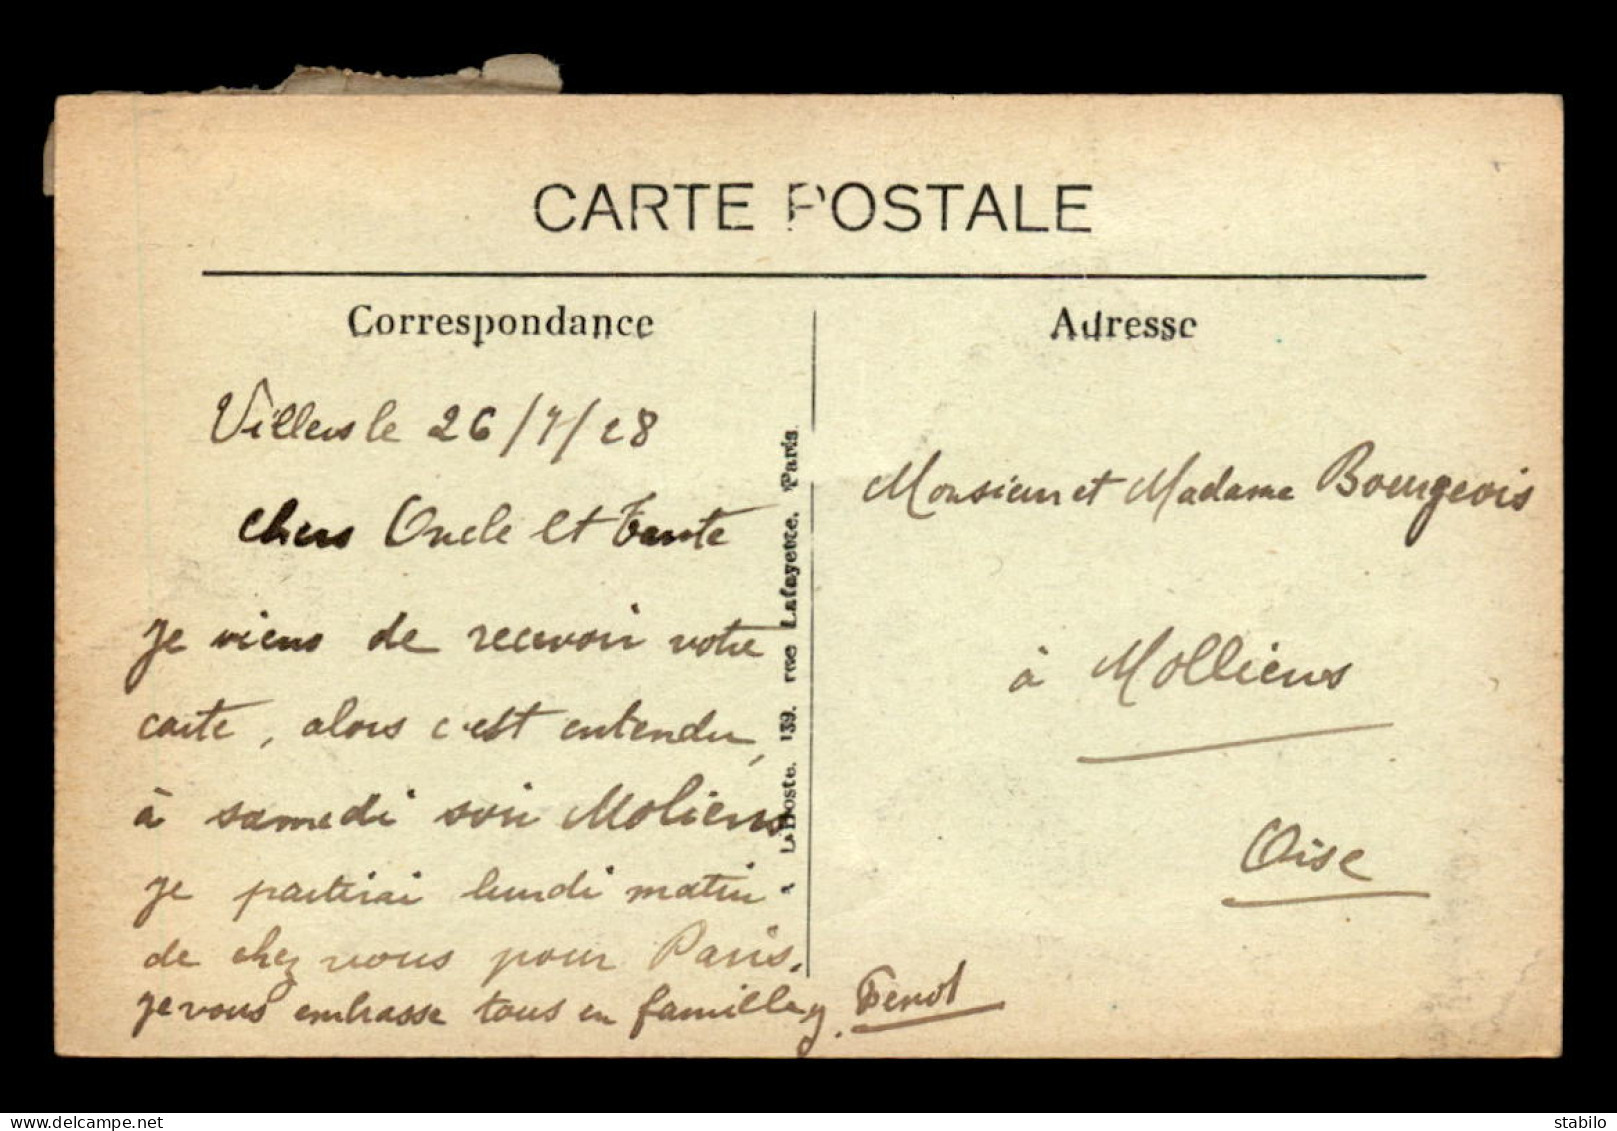 CARTE POSTALE
Correspondance
Villers le 26/7/28
chers Oncle et Tante
je viens de recevoir votre
carte, alors c'est entendu,
à samedi soir Moliens
je partirai lundi matin
de chez vous pour Paris.
je vous embrasse tous en famille
L'Hoste. 139. rue Lafayette. Paris
Adresse
Monsieur et Madame Bourgeois
à Molliens
Oise
delcampe.net
stabilo